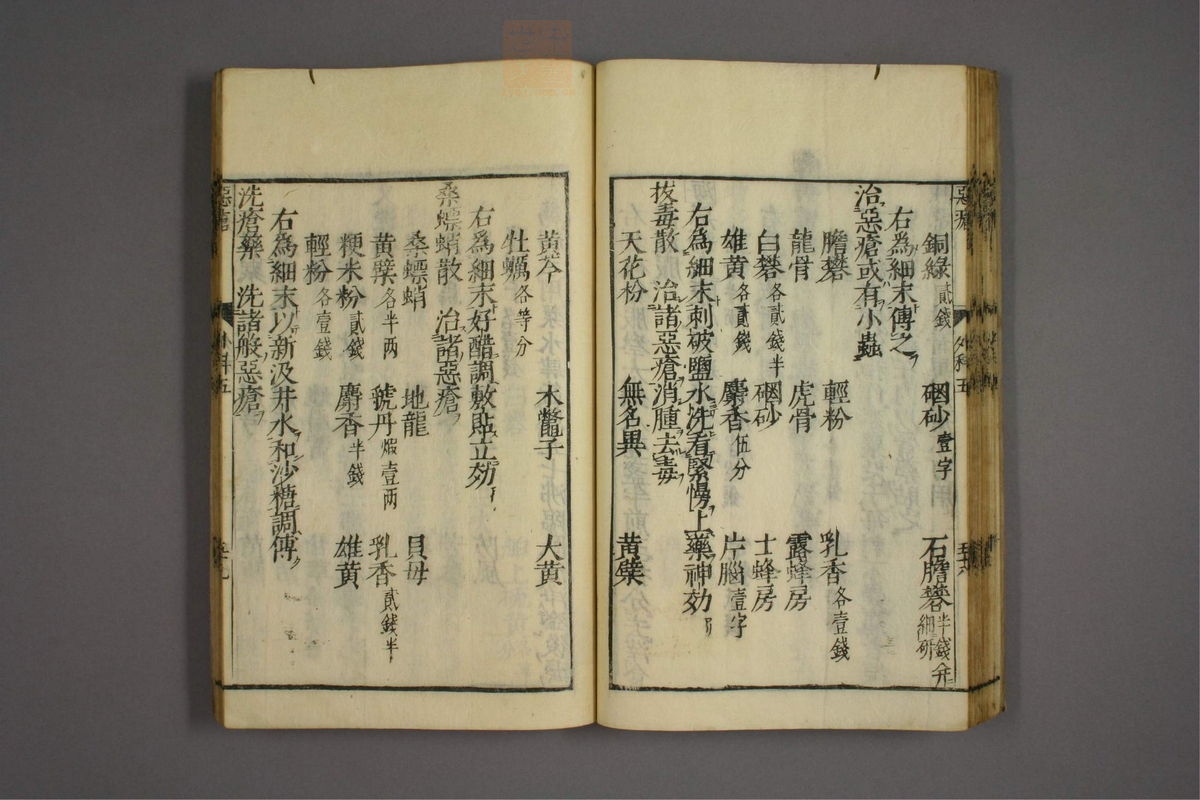 惡瘡
外科五
銅綠貳錢 硇砂壹字 石膽礬半錢并細研
右為細末傅之
治惡瘡或有小蟲
膽礬 輕粉 乳香各壹錢
龍骨 虎骨 露蜂房
白礬各貳錢半 硇砂 土蜂房
雄黃各貳錢 麝香伍分 片腦壹字
右為細末刺破鹽水洗看緊慢上藥神効
拔毒散 治諸惡瘡消腫去毒
天花粉 無名異 黃檗
黃芩 木鼈子 大黃
牡蠣各等分
右為細末好醋調敷貼立効
桑螵蛸散 治諸惡瘡
桑螵蛸 地龍 貝母
黃檗各半两 虢丹煅壹两 乳香貳錢半
粳米粉貳錢 麝香半錢 雄黃
輕粉各壹錢
右為細末以新汲井水和沙糖調傅
洗瘡藥 洗諸般惡瘡
惡瘡
外科五